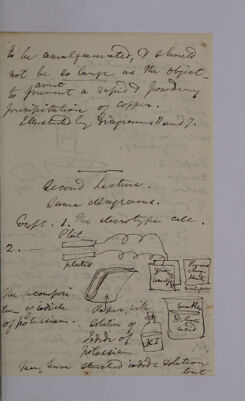 to be amalgamated, & should
not be so large as the object_
avert
to prevent a rapid powdery
precipitation of copper.
Illustrated by diagrams 11 and 7.
Second lecture.
Same diagrams.
Expt. 1. The electrotype cell
2. Plat
platin
The decomposition
of iodide
of potassium.
Paper, with
solution of
Iodide of
Potassium
KI
Dilute
acid
then, have starched iodide solution
but